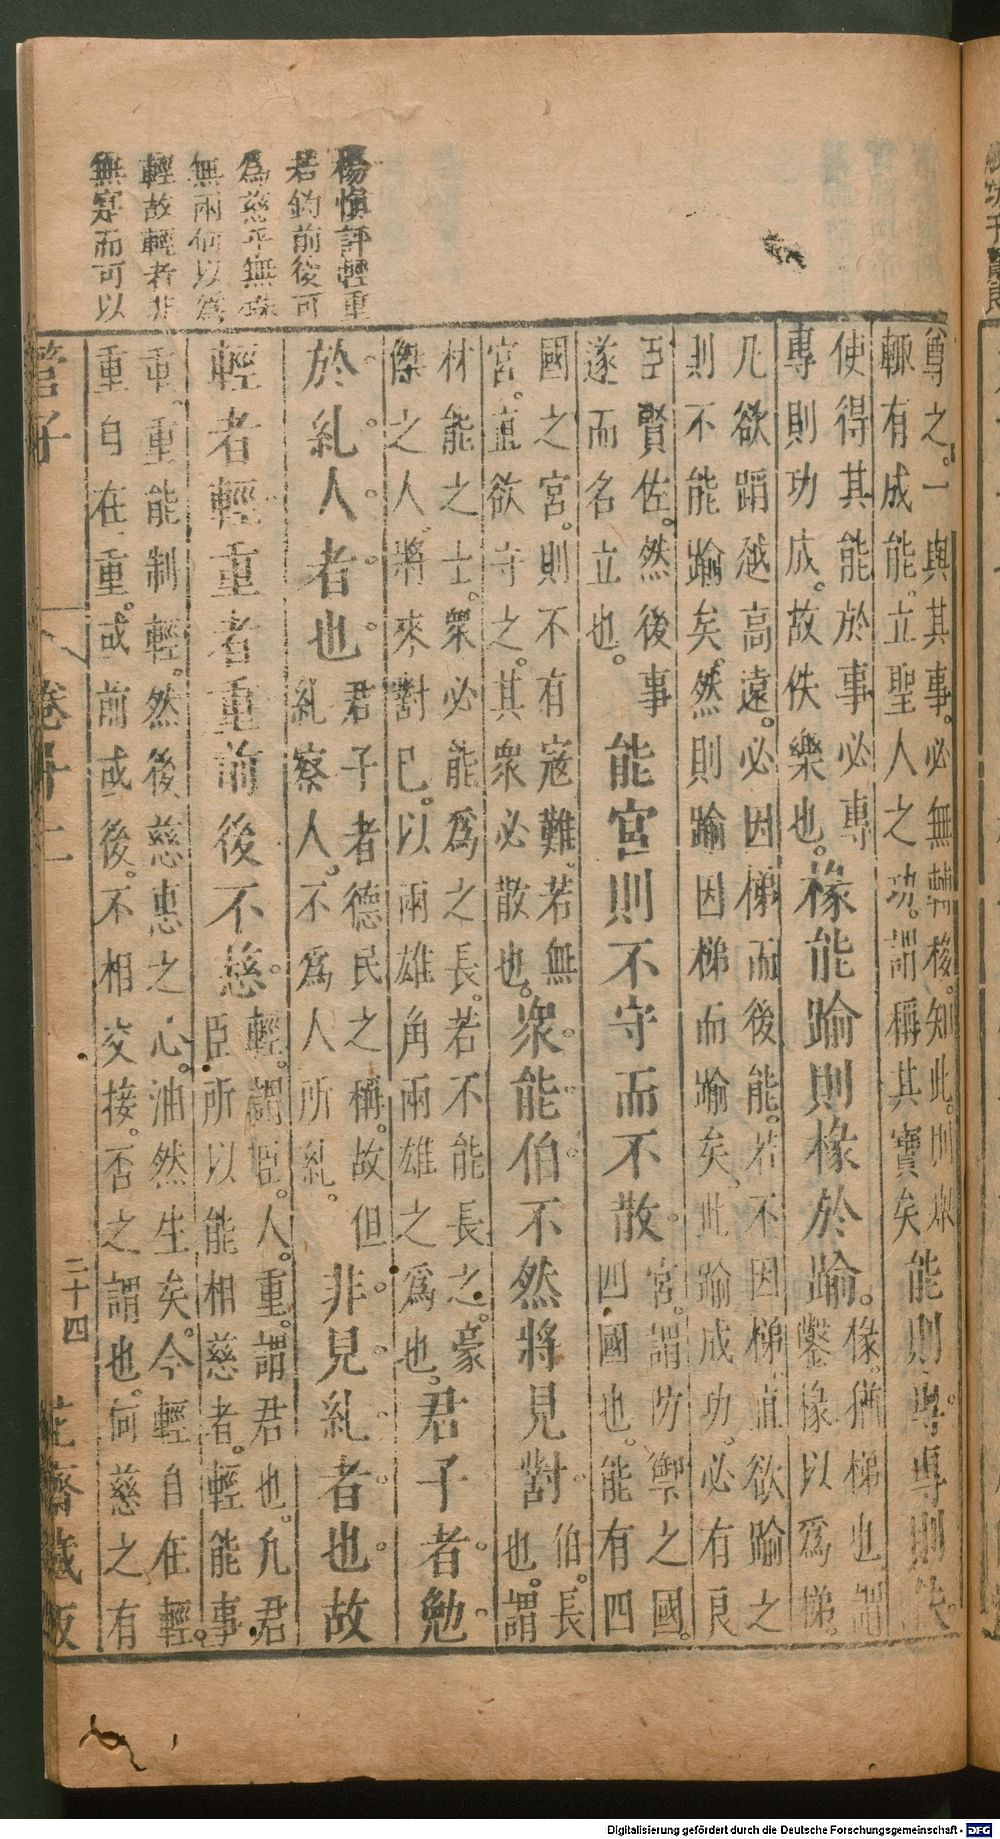 楊慎評輕重
若鈞前後可
為慈乎無
無兩何以為
輕故輕者非
無定而可以
尊之。一與其事。必無轉移。知此。則眾
輒有成能。立聖人之功。謂稱其寶矣
能則專專則佚
使得其能於事必專
專則功成。故佚樂也。
椽能踰則椽於踰。
椽。猶梯也。謂
鑿椽以為梯。
凡欲蹈越高遠。必因梯而後能。若不因梯。直欲踰之
則不能踰矣。然則踰因梯而踰矣。此踰成功。必有良
臣賢佐。然後事
遂而名立也。
能宮則不守而不散。
宮。謂防禦之國。
四國也。能有四
國之宮。則不有寇難。若無
宮。直欲守之。其眾必散也。
衆。能。伯。不然將見對。
伯。長
也。謂
材能之士。衆必能爲之長。若不能長之。豪
傑之人。將來對已。以兩雄角兩雄之爲也。
君子者。勉。
於。糺。人。者。也。
君子者德民之稱。故但
糺察人。不爲人所糺。
非。見。糺。者。也。故
輕者輕重者重前後不慈。
輕。謂臣。人。重。謂君也。凡君
臣所以能相慈者。輕能事
重。重能制輕。然後慈惠之心。油然生矣。今輕自在輕。
重自在重。或前或後。不相交接。否之謂也。何慈之有
管子
卷第十二
二十四
花齋藏板
Digitalisierung gefördert durch die Deutsche Forschungsgemeinschaft - DFG